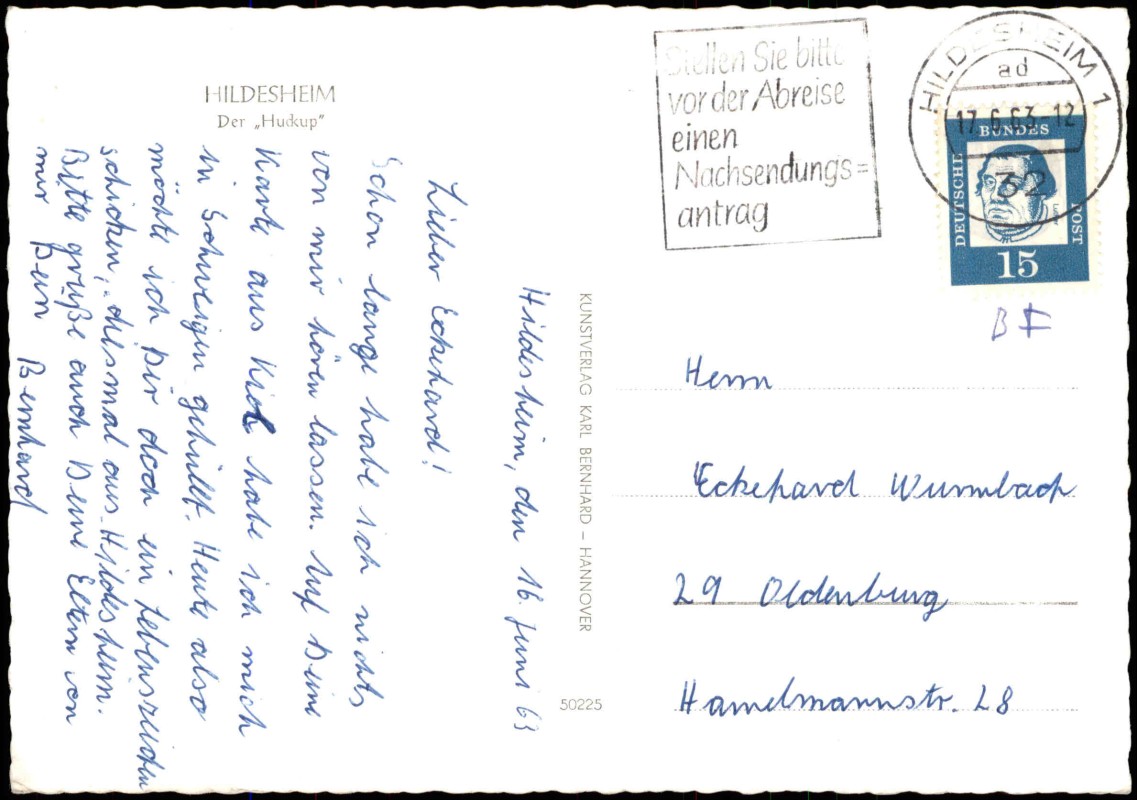 HILDESHEIM
Der „Huckup"
Hildesheim, den 16. Juni 63
Lieber Eckehard!
Schon lange habe ich nichts
von mir hören lassen. Auf Deine
Karte aus Kiel habe ich mich
in Schweigen gehüllt. Heute also
möchte ich Dir doch ein Lebenszeichen
schicken, diesmal aus Hildesheim.
Bitte grüße auch Deine Eltern von
mir Dein Bernhard
KUNSTVERLAG KARL BERNHARD – HANNOVER
50225
Stellen Sie bitte
vor der Abreise
einen
Nachsendungs=
antrag
HILDESHEIM 1
ad
17.6.63-12
32
DEUTSCHE
BUNDES
POST
Luther
15
Herrn
Eckehard Wurmbach
29 Oldenburg
Hamelmannstr. 28